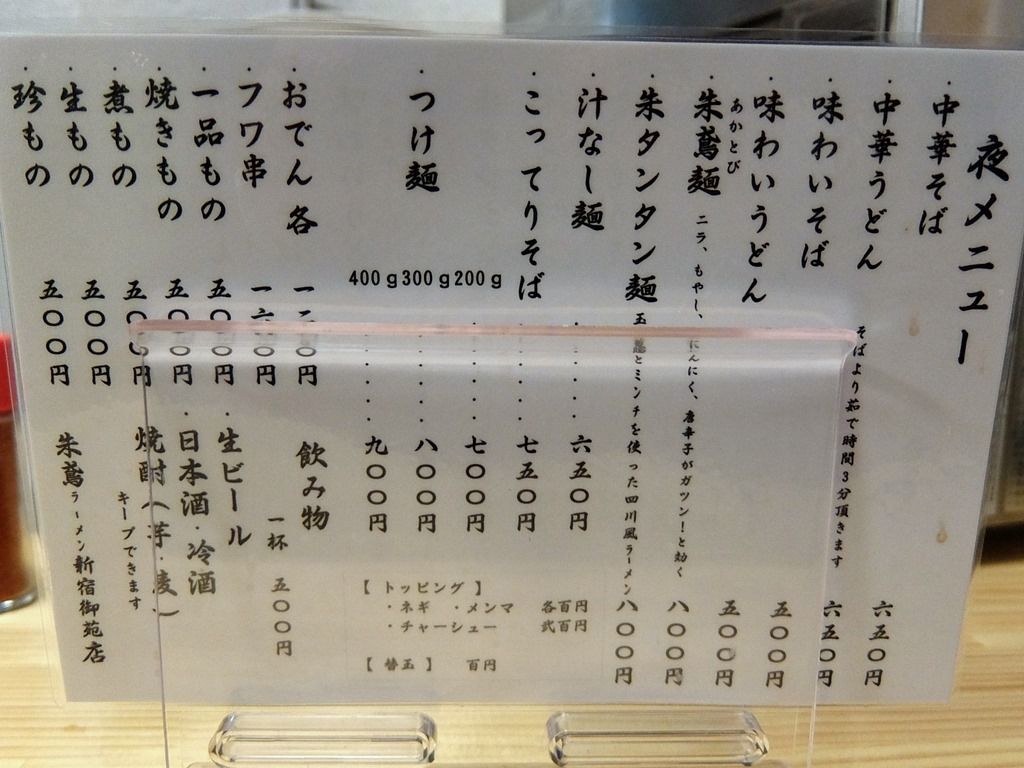 夜メニュー
・中華そば 六五〇円
・中華うどん そばより茹で時間3分頂きます 六五〇円
・味わいそば 五〇〇円
・味わいうどん 五〇〇円
あかとび
・朱鳶麺 ニラ、もやし、にんにく、唐辛子がガツン!と効く 八〇〇円
・朱タンタン麺 玉葱とミンチを使った四川風ラーメン 八〇〇円
・汁なし麺 ・・・・・六五〇円
・こってりそば ・・・・・七五〇円
・つけ麺
200g ・・・・・七〇〇円
300g ・・・・・八〇〇円
400g ・・・・・九〇〇円
【トッピング】
・ネギ ・メンマ 各百円
・チャーシュー 弐百円
【替玉】 百円
・おでん各 一二〇円
・フワ串 一六〇円
・一品もの 五〇〇円
・焼きもの 五〇〇円
・煮もの 五〇〇円
・生もの 五〇〇円
・珍もの 五〇〇円
飲み物
一杯 五〇〇円
・生ビール
・日本酒・冷酒
・焼酎(芋・麦)
キープできます
朱鳶ラーメン新宿御苑店